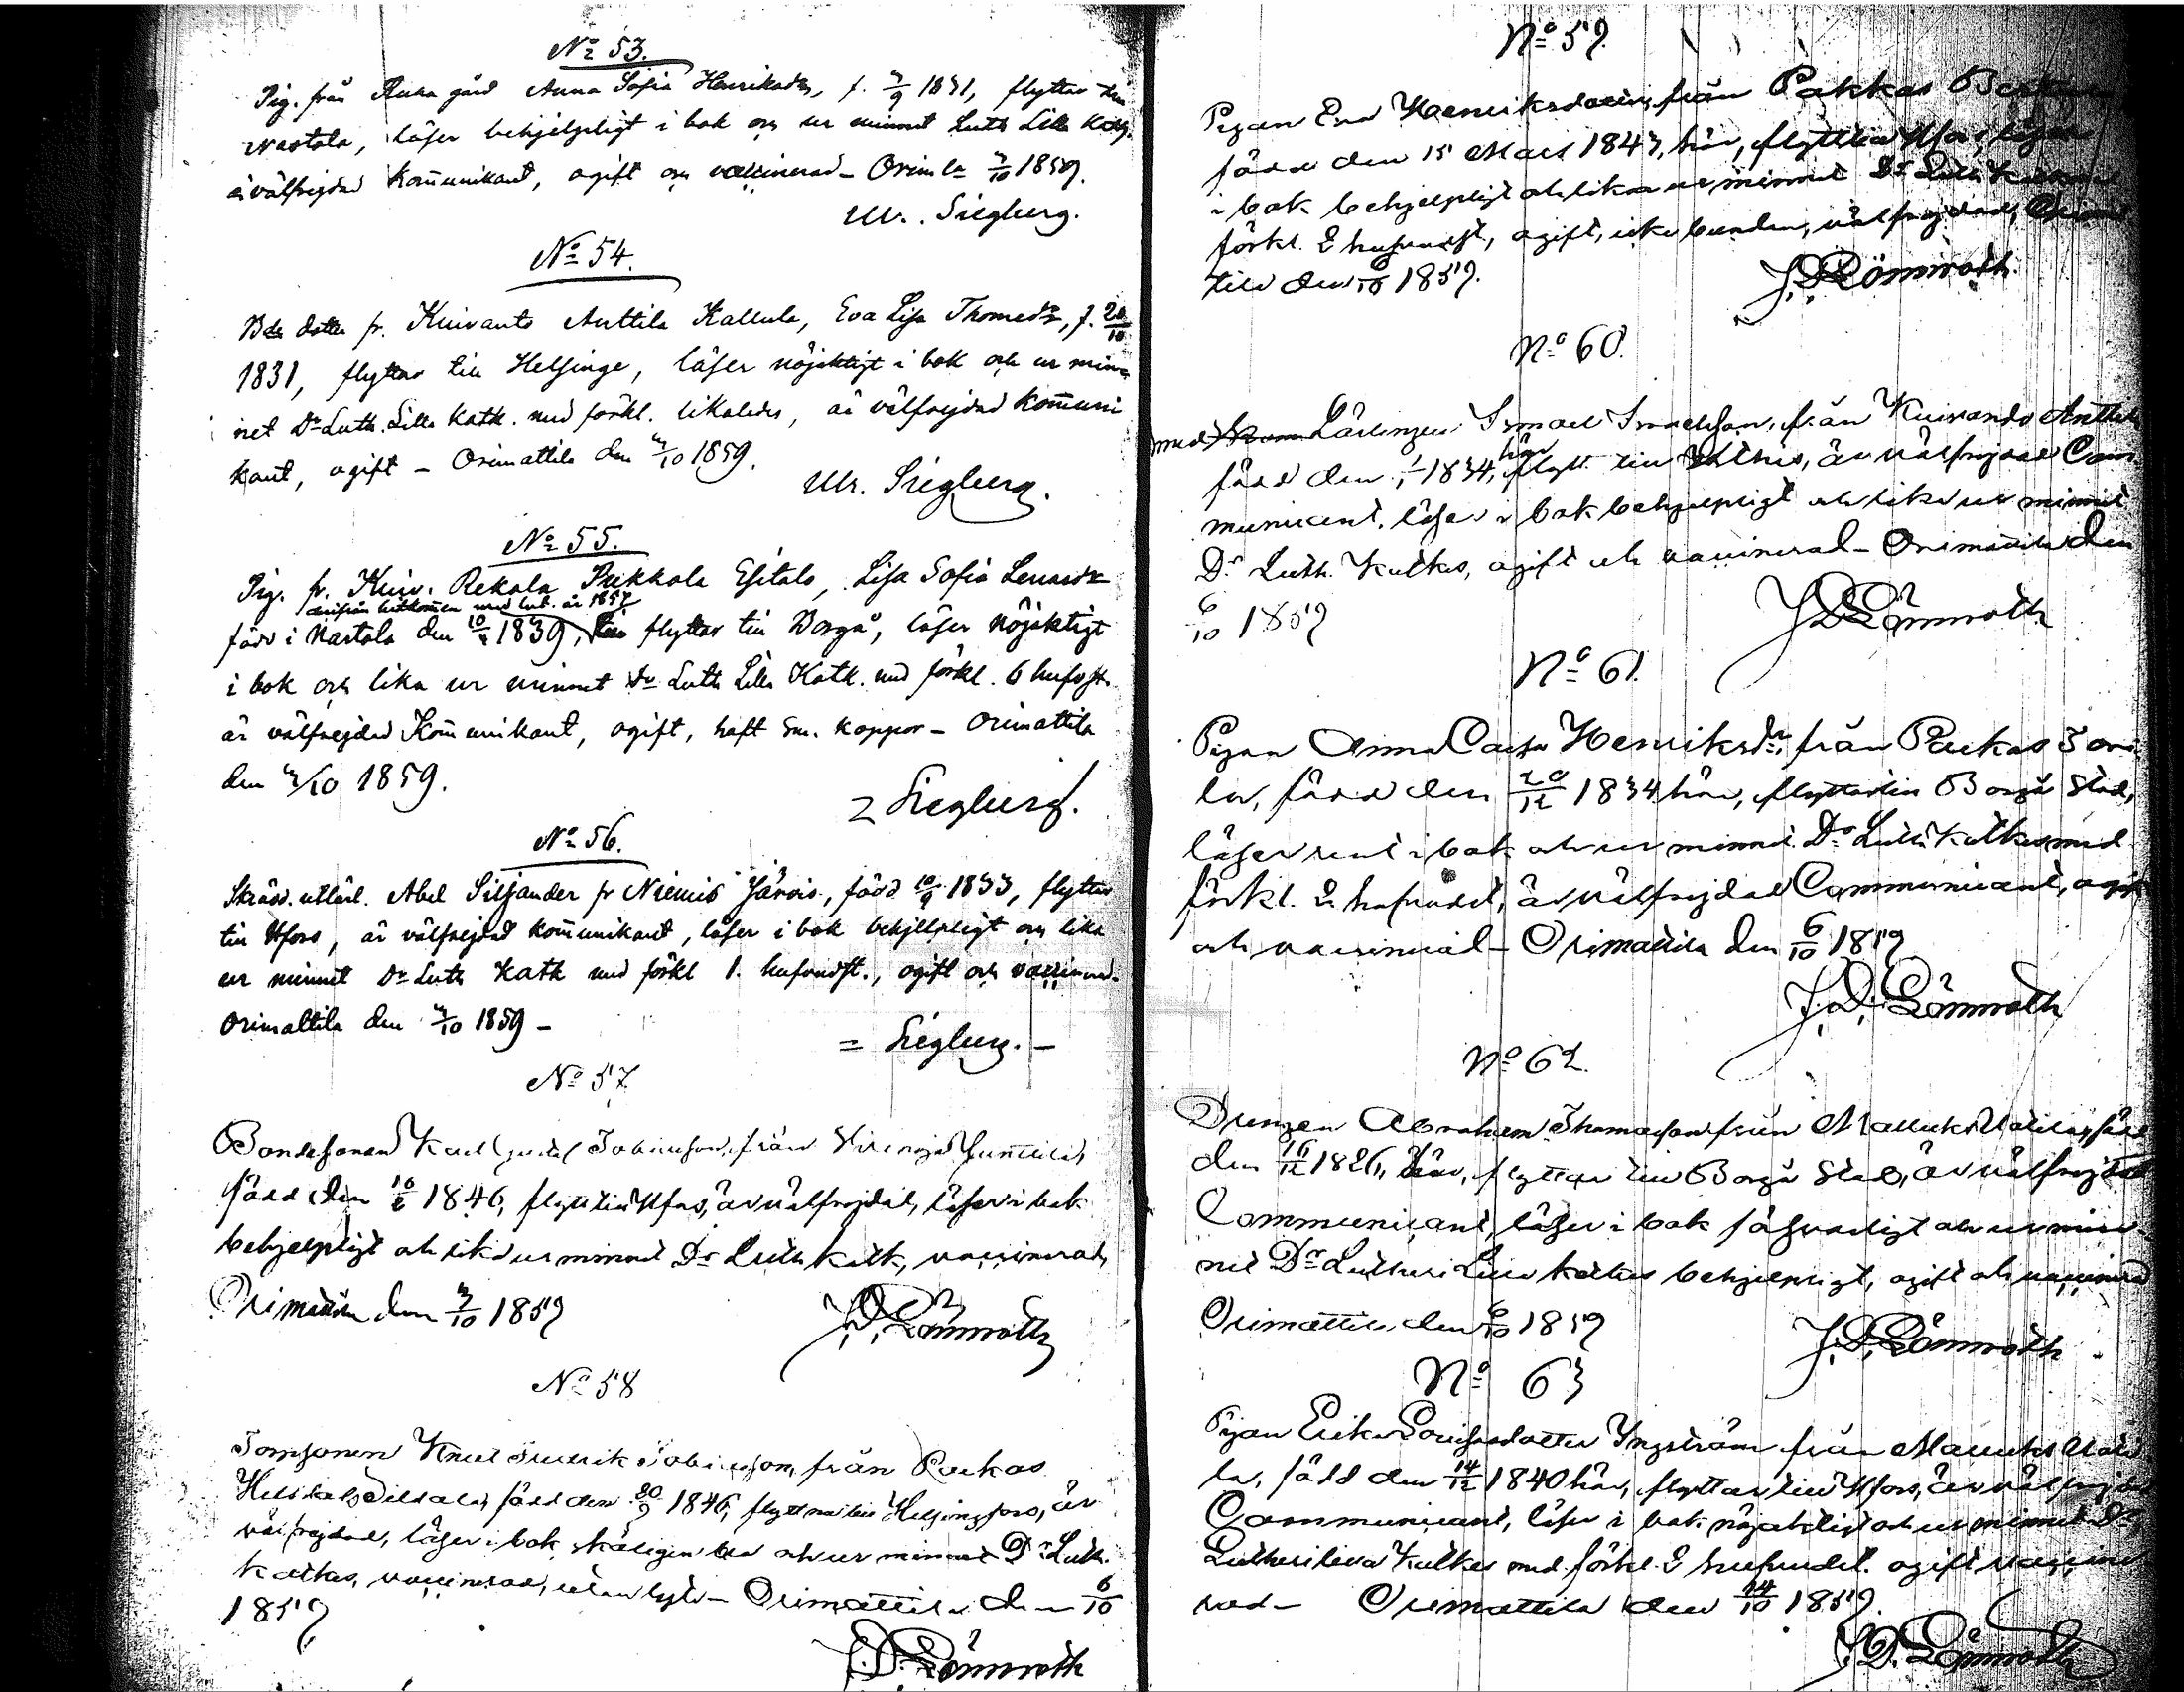 No 53.
Pig. från Ruha gård Anna Sofia Henriksdr, f. 3/9 1831, flyttar till
Nastola, läser behjelpligt i bok och ur minnet Luth Lilla Kath.
är välfrejdad Kom̄unikant, ogift och vaccinerad – Orim la 3/10 1859.
Ulr. Siegberg.
No 54.
Bde dotter fr. Kuivanto Anttila Kallula, Eva Lisa Thomasdr, f. 20/10
1831, flyttar till Helsinge, läser nöjaktigt i bok och ur min-
net Dr Luth. Lilla Kath. med förkl. likaledes, är välfrejdad Kom̄uni
kant, ogift – Orimattila den 3/10 1859.
Ulr. Siegberg.
No 55.
Pig. fr. Kuiv. Rekola Pukkala Esitalo, Lisa Sofia Lenardr
derifrån hitkommen med bet. år 1857
född i Nastola den 10/3 1839, flyttar till Borgå, läser nöjaktigt
i bok och lika ur minnet Dr Luth Lilla Kath. med förkl. 6 hufvst.
är välfrejdad Kom̄unikant, ogift, haft sm. koppor – Orimattila
den 3/10 1859.
Siegberg.
No 56.
Skrädd. utlärl. Abel Siljander fr Niemis Järvis., född 10/9 1833, flyttar
till Hfors, är välfrejdad kom̄unikant, läser i bok behjelpligt och lika
ur minnet Dr Luth Kath med förkl 1. hufvudst., ogift och vaccinerad.
Orimattila den 3/10 1859 –
= Siegberg. –
No 57.
Bondesonen Karl Gustaf Johansson, från
född den 10/2 1846, flytt till Hfors, är välfrejdad, läser i bok
behjelpligt och lika ur minnet Dr Luth. Katk., vaccinerad,
Orimattila den 3/10 1859
J. D. Lönnroth
No 58
Torpsonen Knut Fredrik Johansson, från Luckas
född den 20/9 1846, flyttar till Helsingfors, är
välfrejdad, läser i bok skäligen bra och ur minnet Dr Luth.
katkes, vaccinerad, utan lyte – Orimattila den 6/10
1859
J. D. Lönnroth
No 59.
Pigan Eva Henriksdotter, från Pakkas
född den 15 Mars 1843, här, flyttar till Hfors, läser
i bok behjelpligt och lika ur minnet Dr Luth Katkes med
förkl. 2 hufvudst, ogift, icke bunden, välfrejdad, Orimat
tila den 6/10 1859.
J. D. Lönnroth.
No 60.
Lärlingen Ismael Ismaelsson, från Kuivando Anttila
född den 1/1 1834, här flytt. till är välfrejdad Com-
municant, läser i bok behjelpligt och lika ur minnet
Dr Luth. Katkes, ogift och vaccinerad – Orimattila den
6/10 1859
J. D. Lönnroth
No 61.
Pigan Anna Caisa Henriksdr, från Luckas
la, född den 20/12 1834 här, flyttar till Borgå Stad,
läser rent i bok och ur minnet Dr Luth Katkes med
förkl. 2 hufvudst, är välfrejdad Communicant, ogift
och vaccinerad – Orimattila den 6/10 1859
J. D. Lönnroth
No 62.
Drengen Abraham Thomasson från Mallusk född
den 16/12 1826, här, flyttar till Borgå Stad, är välfrejdad
Communicant, läser i bok försvarligt och ur min-
net Dr Lutheri Lilla katkes behjelpligt, ogift och vaccinerad
Orimattila den 6/10 1859
J. D. Lönnroth
No 63
Pigan Erika Lovisasdotter Yngström från Mallusk
la, född den 14/12 1840 här, flyttar till Hfors, är välfrejdad
Communicant, läser i bok nöjaktigt och ur minnet Dr
Lutheri lilla Katkes med förkl. 2 hufvudst. ogift vaccine
rad – Orimattila den 14/10 1859.
J. D. Lönnroth